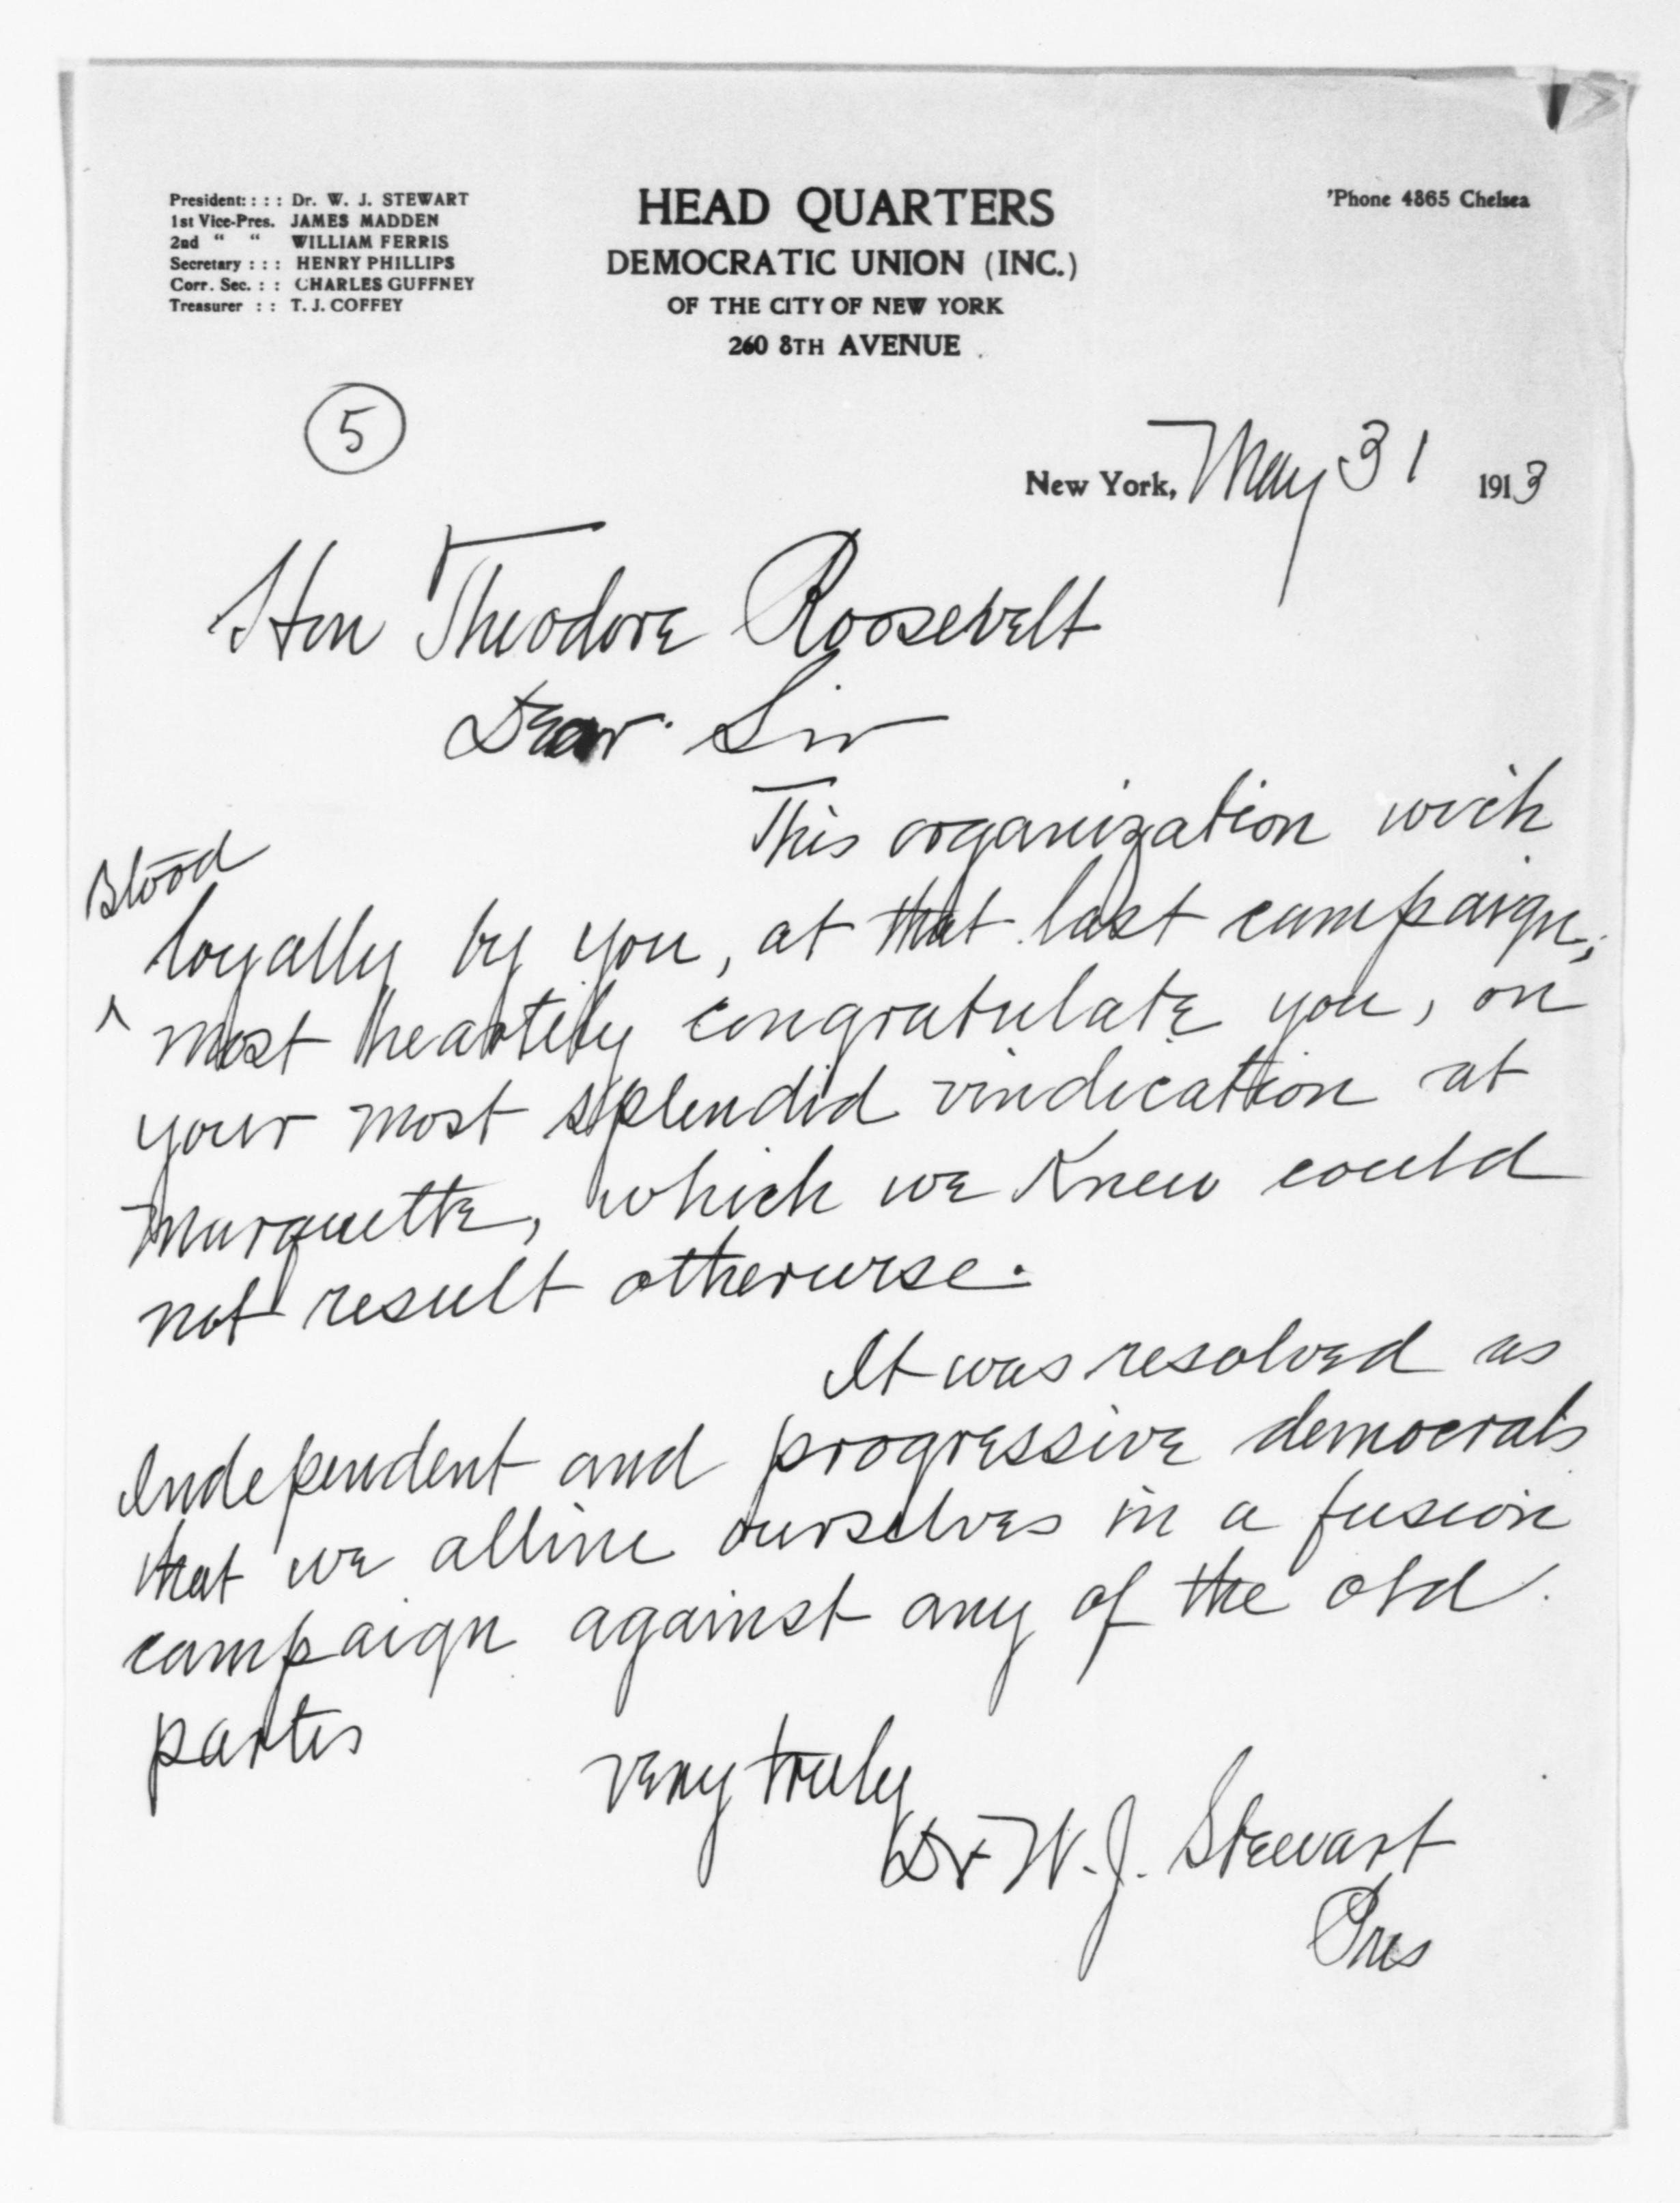 President: : : : Dr. W. J. STEWART
1st Vice-Pres. JAMES MADDEN
2nd " " WILLIAM FERRIS
Secretary : : : HENRY PHILLIPS
Corr. Sec. : : CHARLES GUFFNEY
Treasurer : : T. J. COFFEY
HEAD QUARTERS
DEMOCRATIC UNION (INC.)
OF THE CITY OF NEW YORK
260 8TH AVENUE
'Phone 4865 Chelsea
5
New York, May 31 1913
Hon Theodore Roosevelt
Dear Sir
This organization wich
Stood
loyally by you, at that last campaign,
^ most heartily congratulate you, on
your most splendid vindication at
Marquette, which we knew could
not result otherwise.
It was resolved as
Independent and progressive democrats
that we alline ourselves in a fusion
campaign against any of the old
parties
very truly
Dr W. J. Stewart
Pres